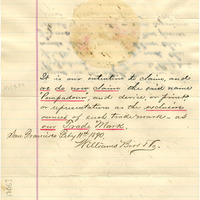 It is our intention to claim, and
we do now claim the said name
"Pompadour", and device, or print
or representation as the exclusive
owners of such trade mark as
our Trade Mark.
San Francisco Feby 10th 1890.
Williams Bro